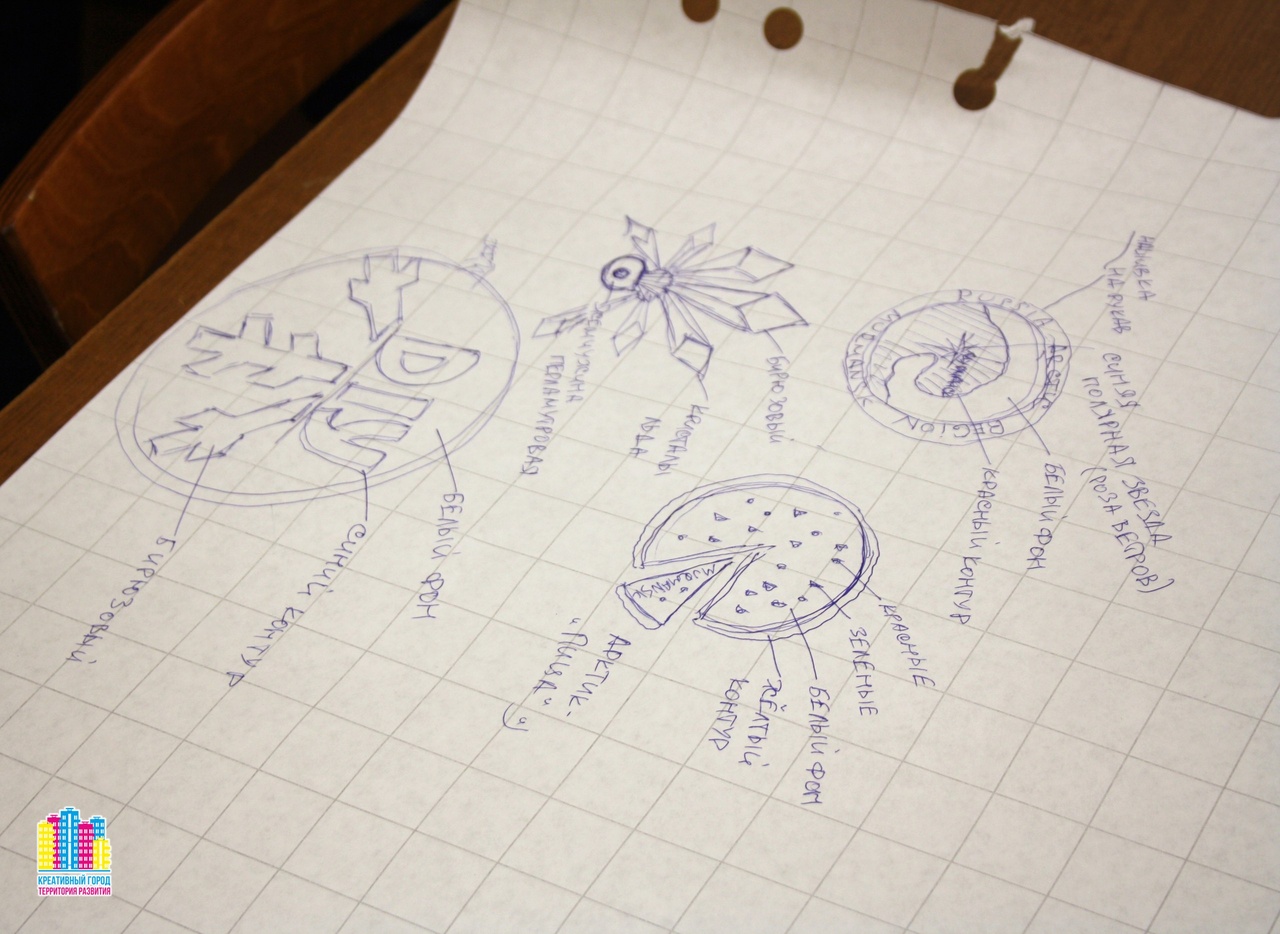 НАШИВКА
НА РУКАВ
СИНЯЯ
ПОЛЯРНАЯ ЗВЕЗДА
(РОЗА ВЕТРОВ)
RUSSIA
ARCTIC
REGION
MURMANSK
БЕЛЫЙ ФОН
КРАСНЫЙ КОНТУР
БИРЮЗОВЫЙ
КРИСТАЛЫ
ЛЬДА
ЖЕМЧУЖИНА
ПЕРЛАМУТРОВАЯ
КРАСНЫЕ
ЗЕЛЕНЫЕ
БЕЛЫЙ ФОН
ЖЁЛТЫЙ
КОНТУР
MURMANSK
АРКТИК-
"ПИЦЦА"
БЕЛЫЙ ФОН
СИНИЙ КОНТУР
БИРЮЗОВЫЙ
КРЕАТИВНЫЙ ГОРОД
ТЕРРИТОРИЯ РАЗВИТИЯ